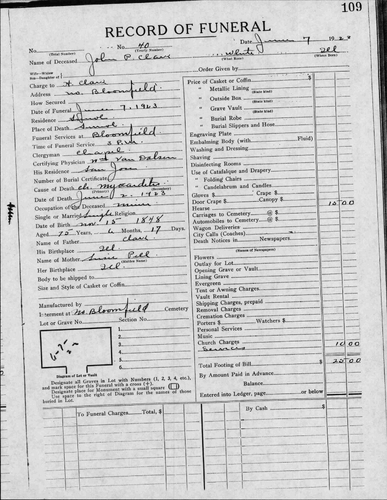 109
RECORD OF FUNERAL
No. No. 40 Date June 7 192
(Total Number) (Yearly Number)
Name of Deceased John P. Clave White Ill
Charge to
Address Bloomfield
How Secured
Date of Funeral June 7, 1923
Residence
Place of Death
Funeral Services at Bloomfield
Time of Funeral Service 3 P.M
Clergyman Chapel
Certifying Physician Van Dalsem
His Residence San Jose
Number of Burial Certificate
Cause of Death Ch. myocarditis
Date of Death June 2, 1923
Occupation of the Deceased
Single or Married Single Religion
Date of Birth Nov 15 1848
Aged 75 Years, 6 Months, 17 Days.
Name of Father Clave
His Birthplace Ill
Name of Mother Pell
Her Birthplace Ill
Body to be shipped to
Size and Style of Casket or Coffin
Manufactured by
Interment at Bloomfield Cemetery
Lot or Grave No. Section No.
1.
2.
3.
4.
5.
6.
7.
Diagram of Lot or Vault
Designate all Graves in Lot with Numbers (1, 2, 3, 4, etc.),
and mark space for this Funeral with a cross (+).
Designate place for Monument with a small square
Use space to the right of Diagram for the names of those
buried in Lot.
To Funeral Charges Total, $
Order Given by
Price of Casket or Coffin $
" Metallic Lining (State Kind)
" Outside Box (State Kind)
" Grave Vault (State Kind)
" Burial Robe
" Burial Slippers and Hose
Engraving Plate
Embalming Body (with Fluid)
Washing and Dressing
Shaving
Disinfecting Rooms
Use of Catafalque and Drapery
" Folding Chairs
" Candelabrum and Candles
Gloves $ Crape $
Door Crape $ Canopy $
Hearse 15 00
Carriages to Cemetery @ $
Automobiles to Cemetery @ $
Wagon Deliveries
City Calls (Coaches)
Death Notices in Newspapers
(Names of Newspapers)
Flowers
Outlay for Lot
Opening Grave or Vault
Lining Grave
Evergreen
Tent or Awning Charges
Vault Rental
Shipping Charges, prepaid
Removal Charges
Cremation Charges
Porters $ Watchers $
Personal Services
Music
Church Charges
Services 10 00
Total Footing of Bill $ 25 00
By Amount Paid in Advance
Balance
Entered into Ledger, page or below
By Cash $